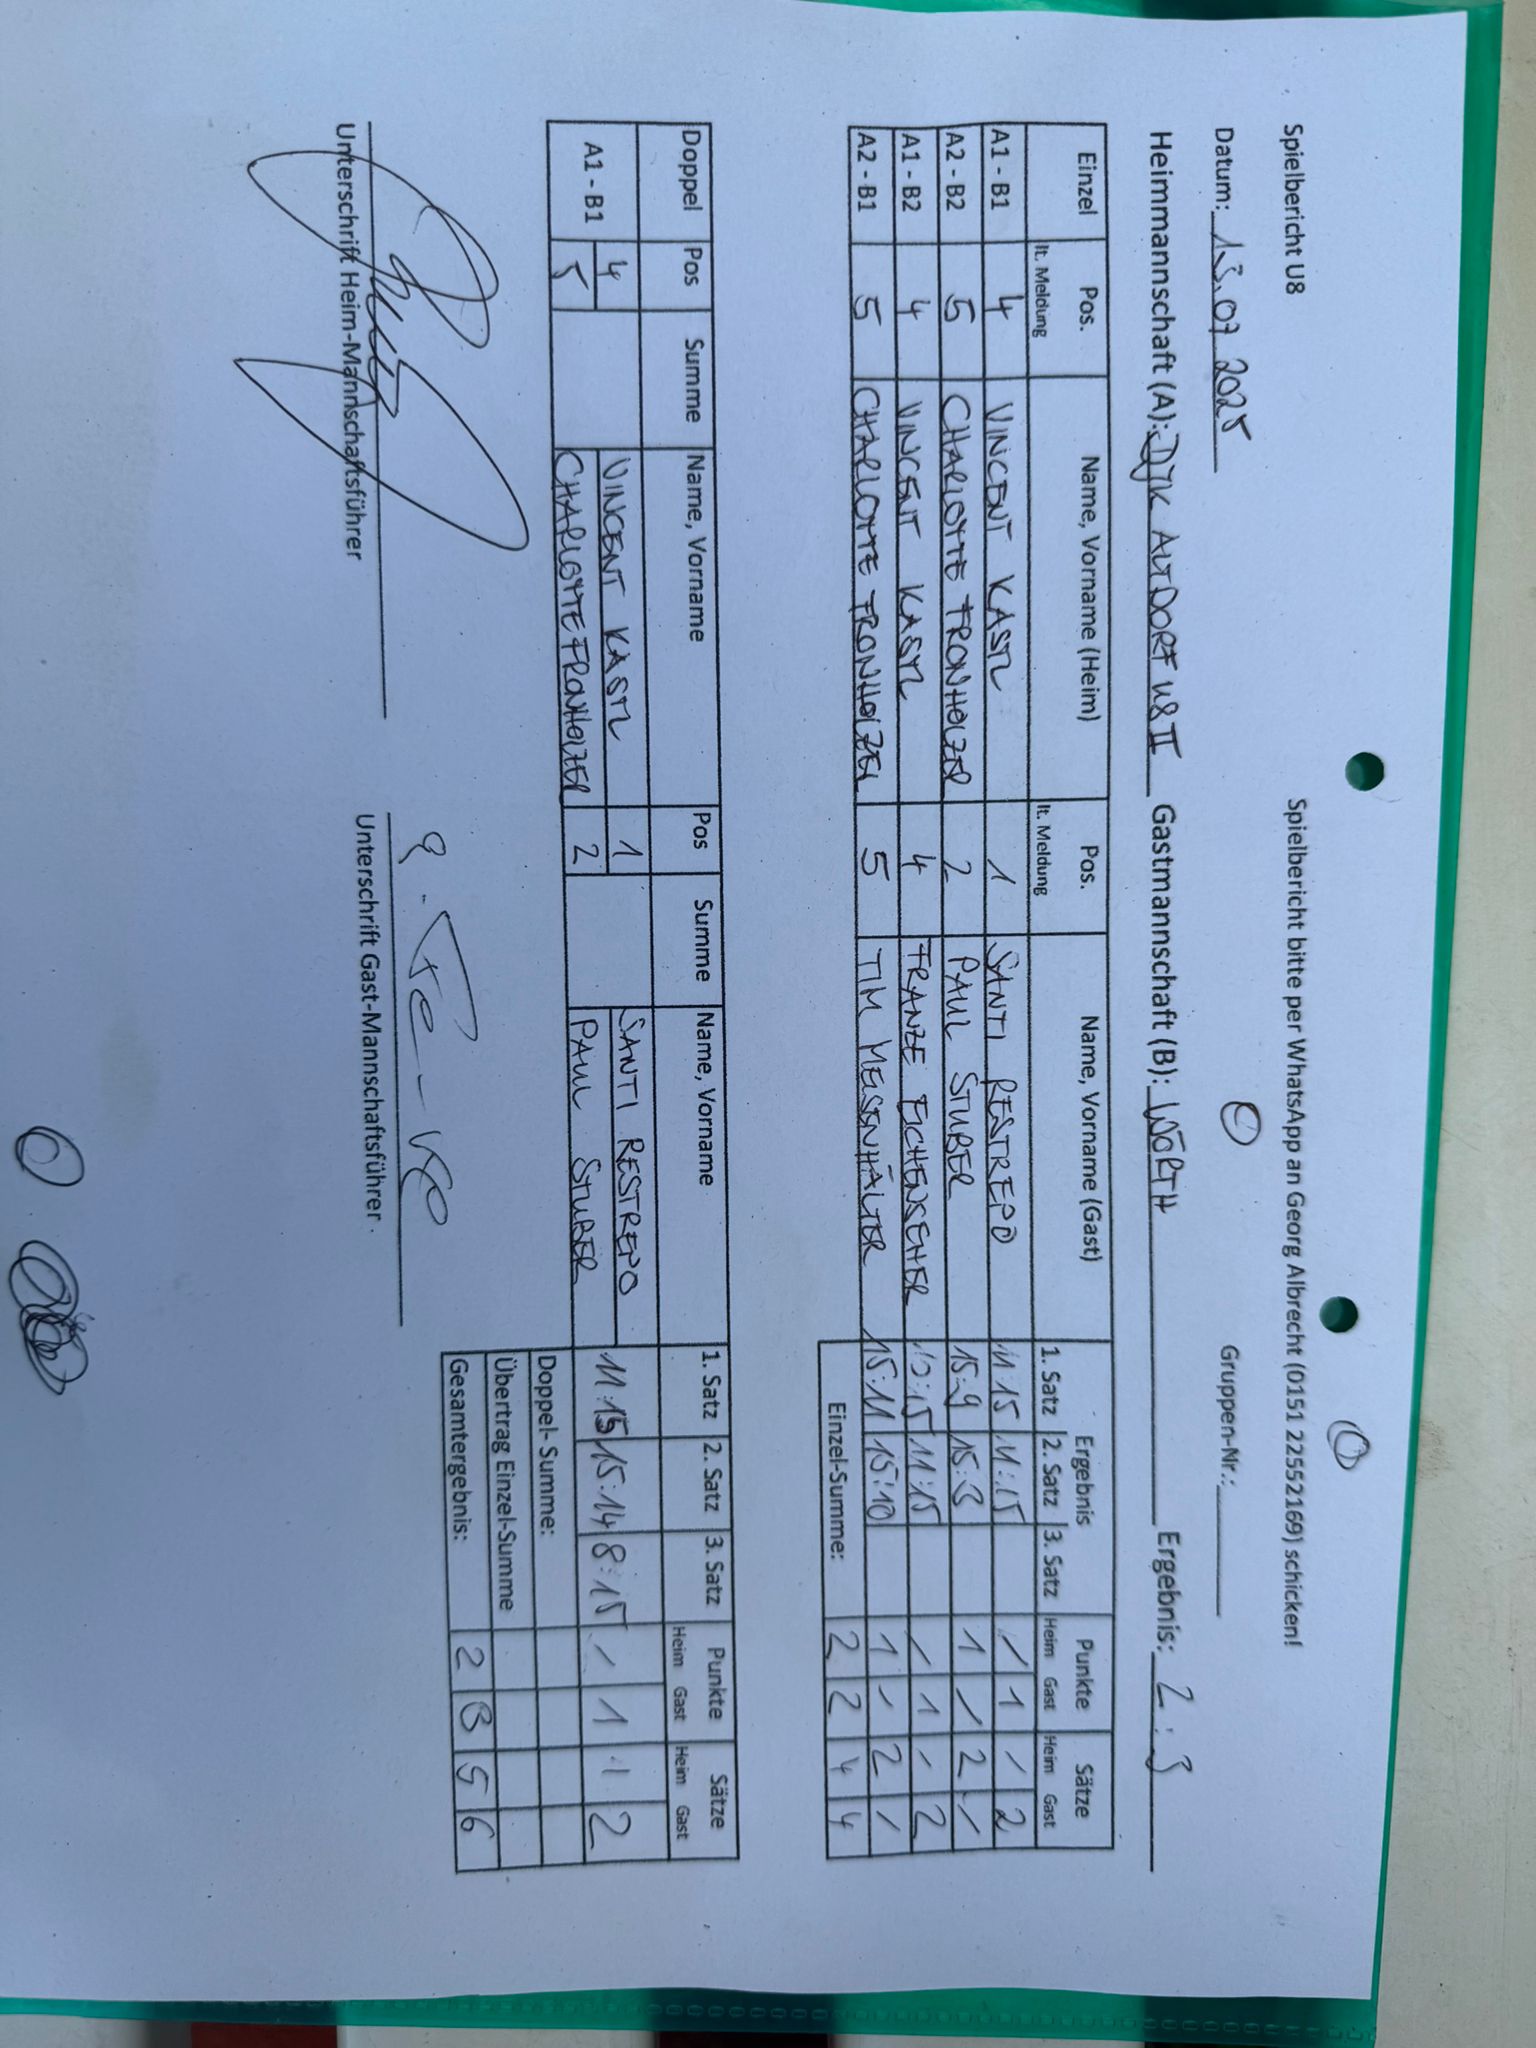 Spielbericht U8 Spielbericht bitte per WhatsApp an Georg Albrecht (0151 22552169) schicken!
Datum: 13.07.2025 Gruppen-Nr.:
Heimmannschaft (A): DJK ALTDORF U8 II Gastmannschaft (B): WÖRTH Ergebnis: 2:3
Einzel Pos. Name, Vorname (Heim) Pos. Name, Vorname (Gast) Ergebnis Punkte Sätze
lt. Meldung lt. Meldung 1. Satz 2. Satz 3. Satz Heim Gast Heim Gast
A1 - B1 4 VINCENT KASTL 1 SANTI RESTREPO 11:15 11:15 / 1 / 2
A2 - B2 5 CHARLOTTE FRONHOLZER 2 PAUL STUBER 15:9 15:3 1 / 2 /
A1 - B2 4 VINCENT KASTL 4 FRANZE EICHENSEHER :15 11:15 / 1 / 2
A2 - B1 5 CHARLOTTE FRONHOLZER 5 TIM MEISENHÄLTER 15:11 15:10 1 / 2 /
Einzel-Summe: 2 2 4 4
Doppel Pos Summe Name, Vorname Pos Summe Name, Vorname 1. Satz 2. Satz 3. Satz Punkte Sätze
Heim Gast Heim Gast
A1 - B1 4 VINCENT KASTL 1 SANTI RESTREPO 11:15 15:14 8:15 / 1 1 2
5 CHARLOTTE FRONHOLZER 2 PAUL STUBER
Doppel- Summe:
Übertrag Einzel-Summe
Gesamtergebnis: 2 3 5 6
Unterschrift Heim-Mannschaftsführer Unterschrift Gast-Mannschaftsführer